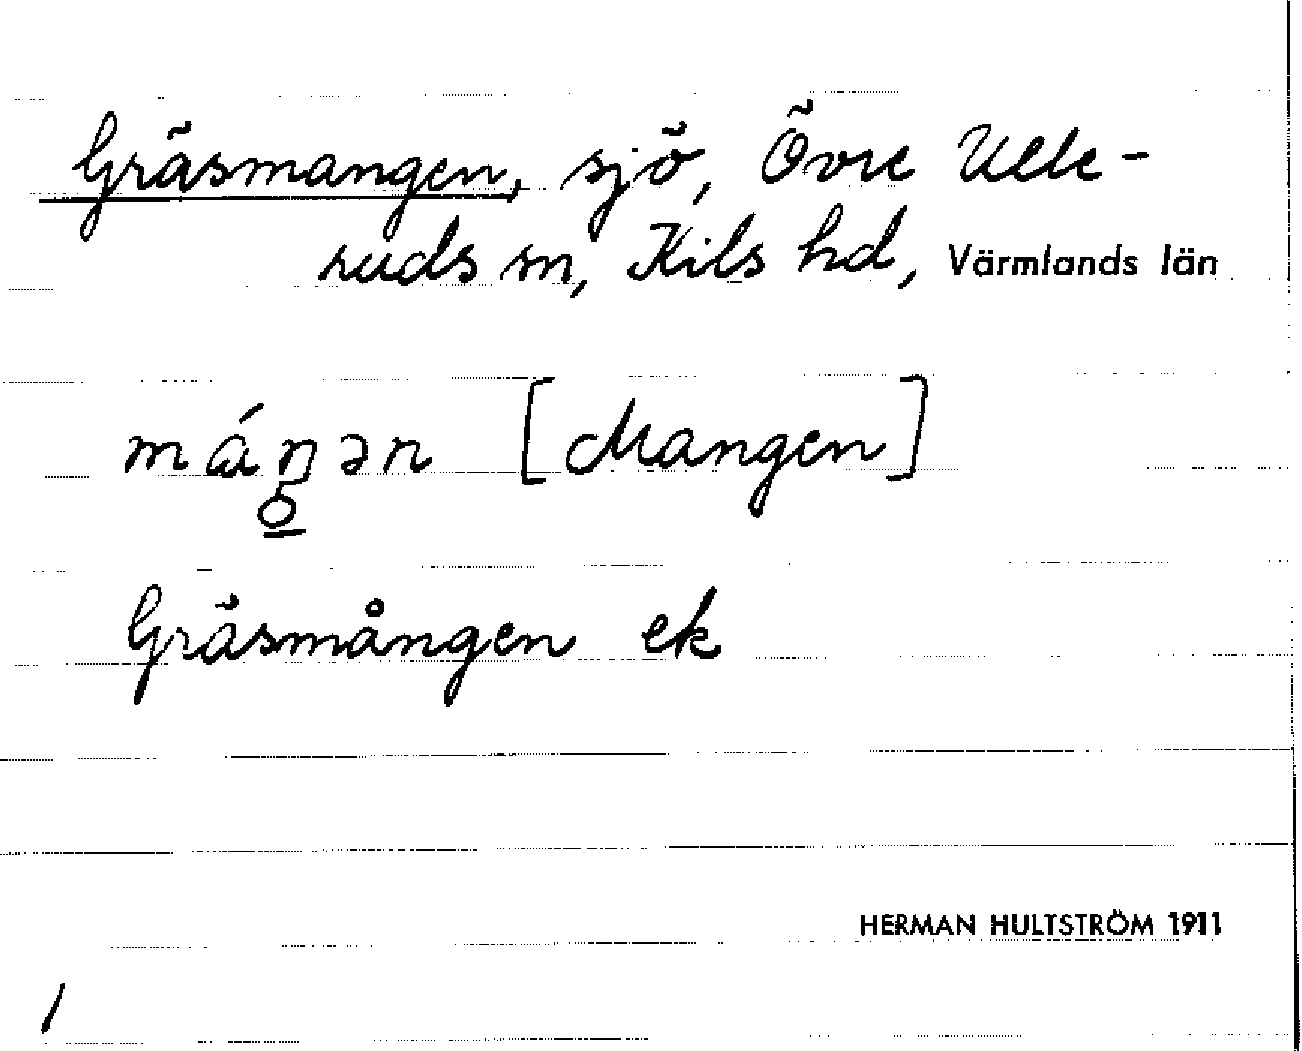 Gräsmangen, sjö, Övre Ulle-
ruds sn, Kils hd, Värmlands län
máŋən [Mangen]
o
Gräsmången ek
HERMAN HULTSTRÖM 1911
/